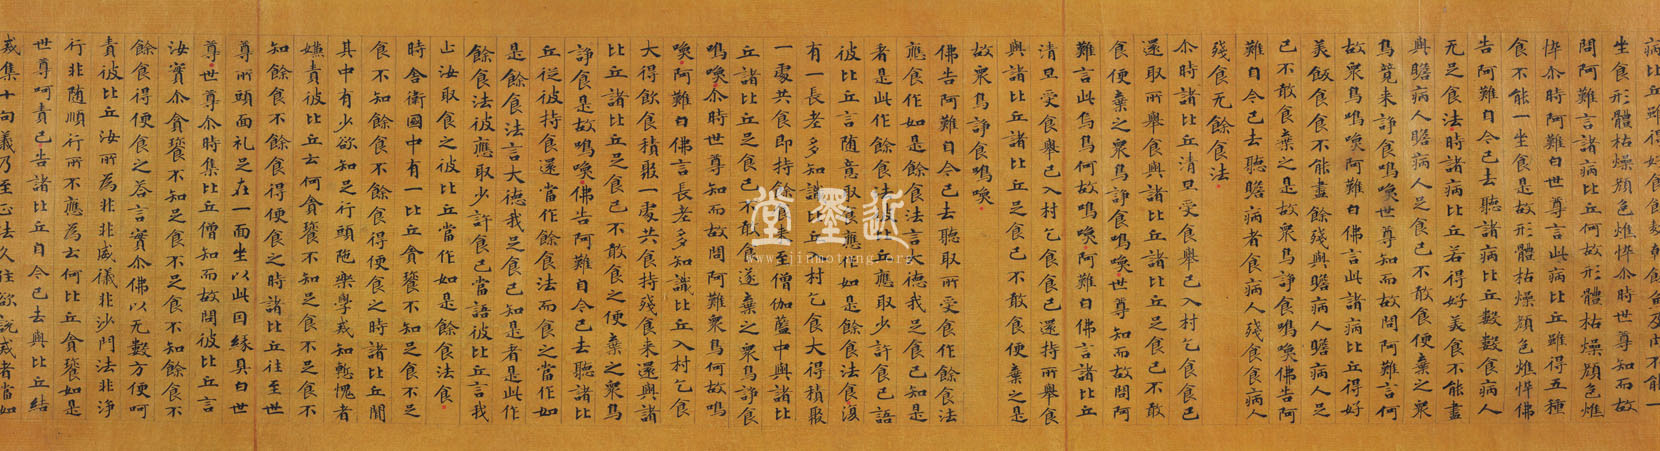 病比丘雖得好食
坐食形體枯燥顏色燋悴尒時世尊知而故
問阿難言諸病比丘何故形體枯燥顏色燋
悴尒時阿難白世尊言此病比丘雖得五種
食不能一坐食是故形體枯燥顏色燋悴佛
告阿難自今已去聽諸病比丘數數食病人
无足食法時諸病比丘若得好美食不能盡
與瞻病人瞻病人足食已不敢食便棄之衆
鳥競来諍食鳴喚世尊知而故問阿難言何
故衆鳥鳴喚阿難白佛言此諸病比丘得好
美飯食食不能盡餘殘與瞻病人瞻病人足
已不敢食棄之是故衆鳥諍食鳴喚佛告阿
難自今已去聽瞻病者食病人殘食病人
殘食无餘食法
尒時諸比丘清旦受食舉已入村乞食食已
還取所舉食與諸比丘諸比丘足食已不敢
食便棄之衆鳥諍食鳴喚世尊知而故問阿
難言此鳥鳥何故鳴喚阿難白佛言諸比丘
清旦受食舉已入村乞食食已還持所舉食
與諸比丘諸比丘足食已不敢食便棄之是
故衆鳥諍食鳴喚
佛告阿難自今已去聽取所受食作餘食法
應食作如是餘食法言大德我足食已知是
者是此作餘食法彼比丘應取少許食已語
彼比丘言随意取食應作如是餘食法食復
有一長老多知識比丘村乞食大得積聚
一處共食即持餘食来至僧伽藍中與諸比
丘諸比丘足食已不敢食遂棄之衆鳥諍食
鳴喚尒時世尊知而故問阿難衆鳥何故鳴
喚阿難白佛言長老多知識比丘入村乞食
大得飲食積聚一處共食持殘食来還與諸
比丘諸比丘足食已不敢食之便棄之衆鳥
諍食是故鳴喚佛告阿難自今已去聽諸比
丘從彼持食還當作餘食法而食之當作如
是餘食法言大德我足食已知是者是此作
餘食法彼應取少許食已當語彼比丘言我
止汝取食之彼比丘當作如是餘食法食
時舍衛國中有一比丘貪餮不知足食不足
食不知餘食不餘食得便食之時諸比丘聞
其中有少欲知足行頭陁樂學戒知慙愧者
嫌責彼比丘云何貪餮不知足食不足食不
知餘食不餘食得便食之時諸比丘往至世
尊所頭面礼足在一面而坐以此因緣具白世
尊世尊尒時集比丘僧知而故問彼比丘言
汝實尒貪餮不知足食不足食不知餘食不
餘食得便食之荅言實尒佛以无數方便呵
責彼比丘汝所為非非威儀非沙門法非淨
行非随順行所不應為云何比丘貪餮如是
世尊呵責已告諸比丘自今已去與比丘結
戒集十句義乃至正法久住欲說戒者當如
近墨堂
www.jinmotang.org